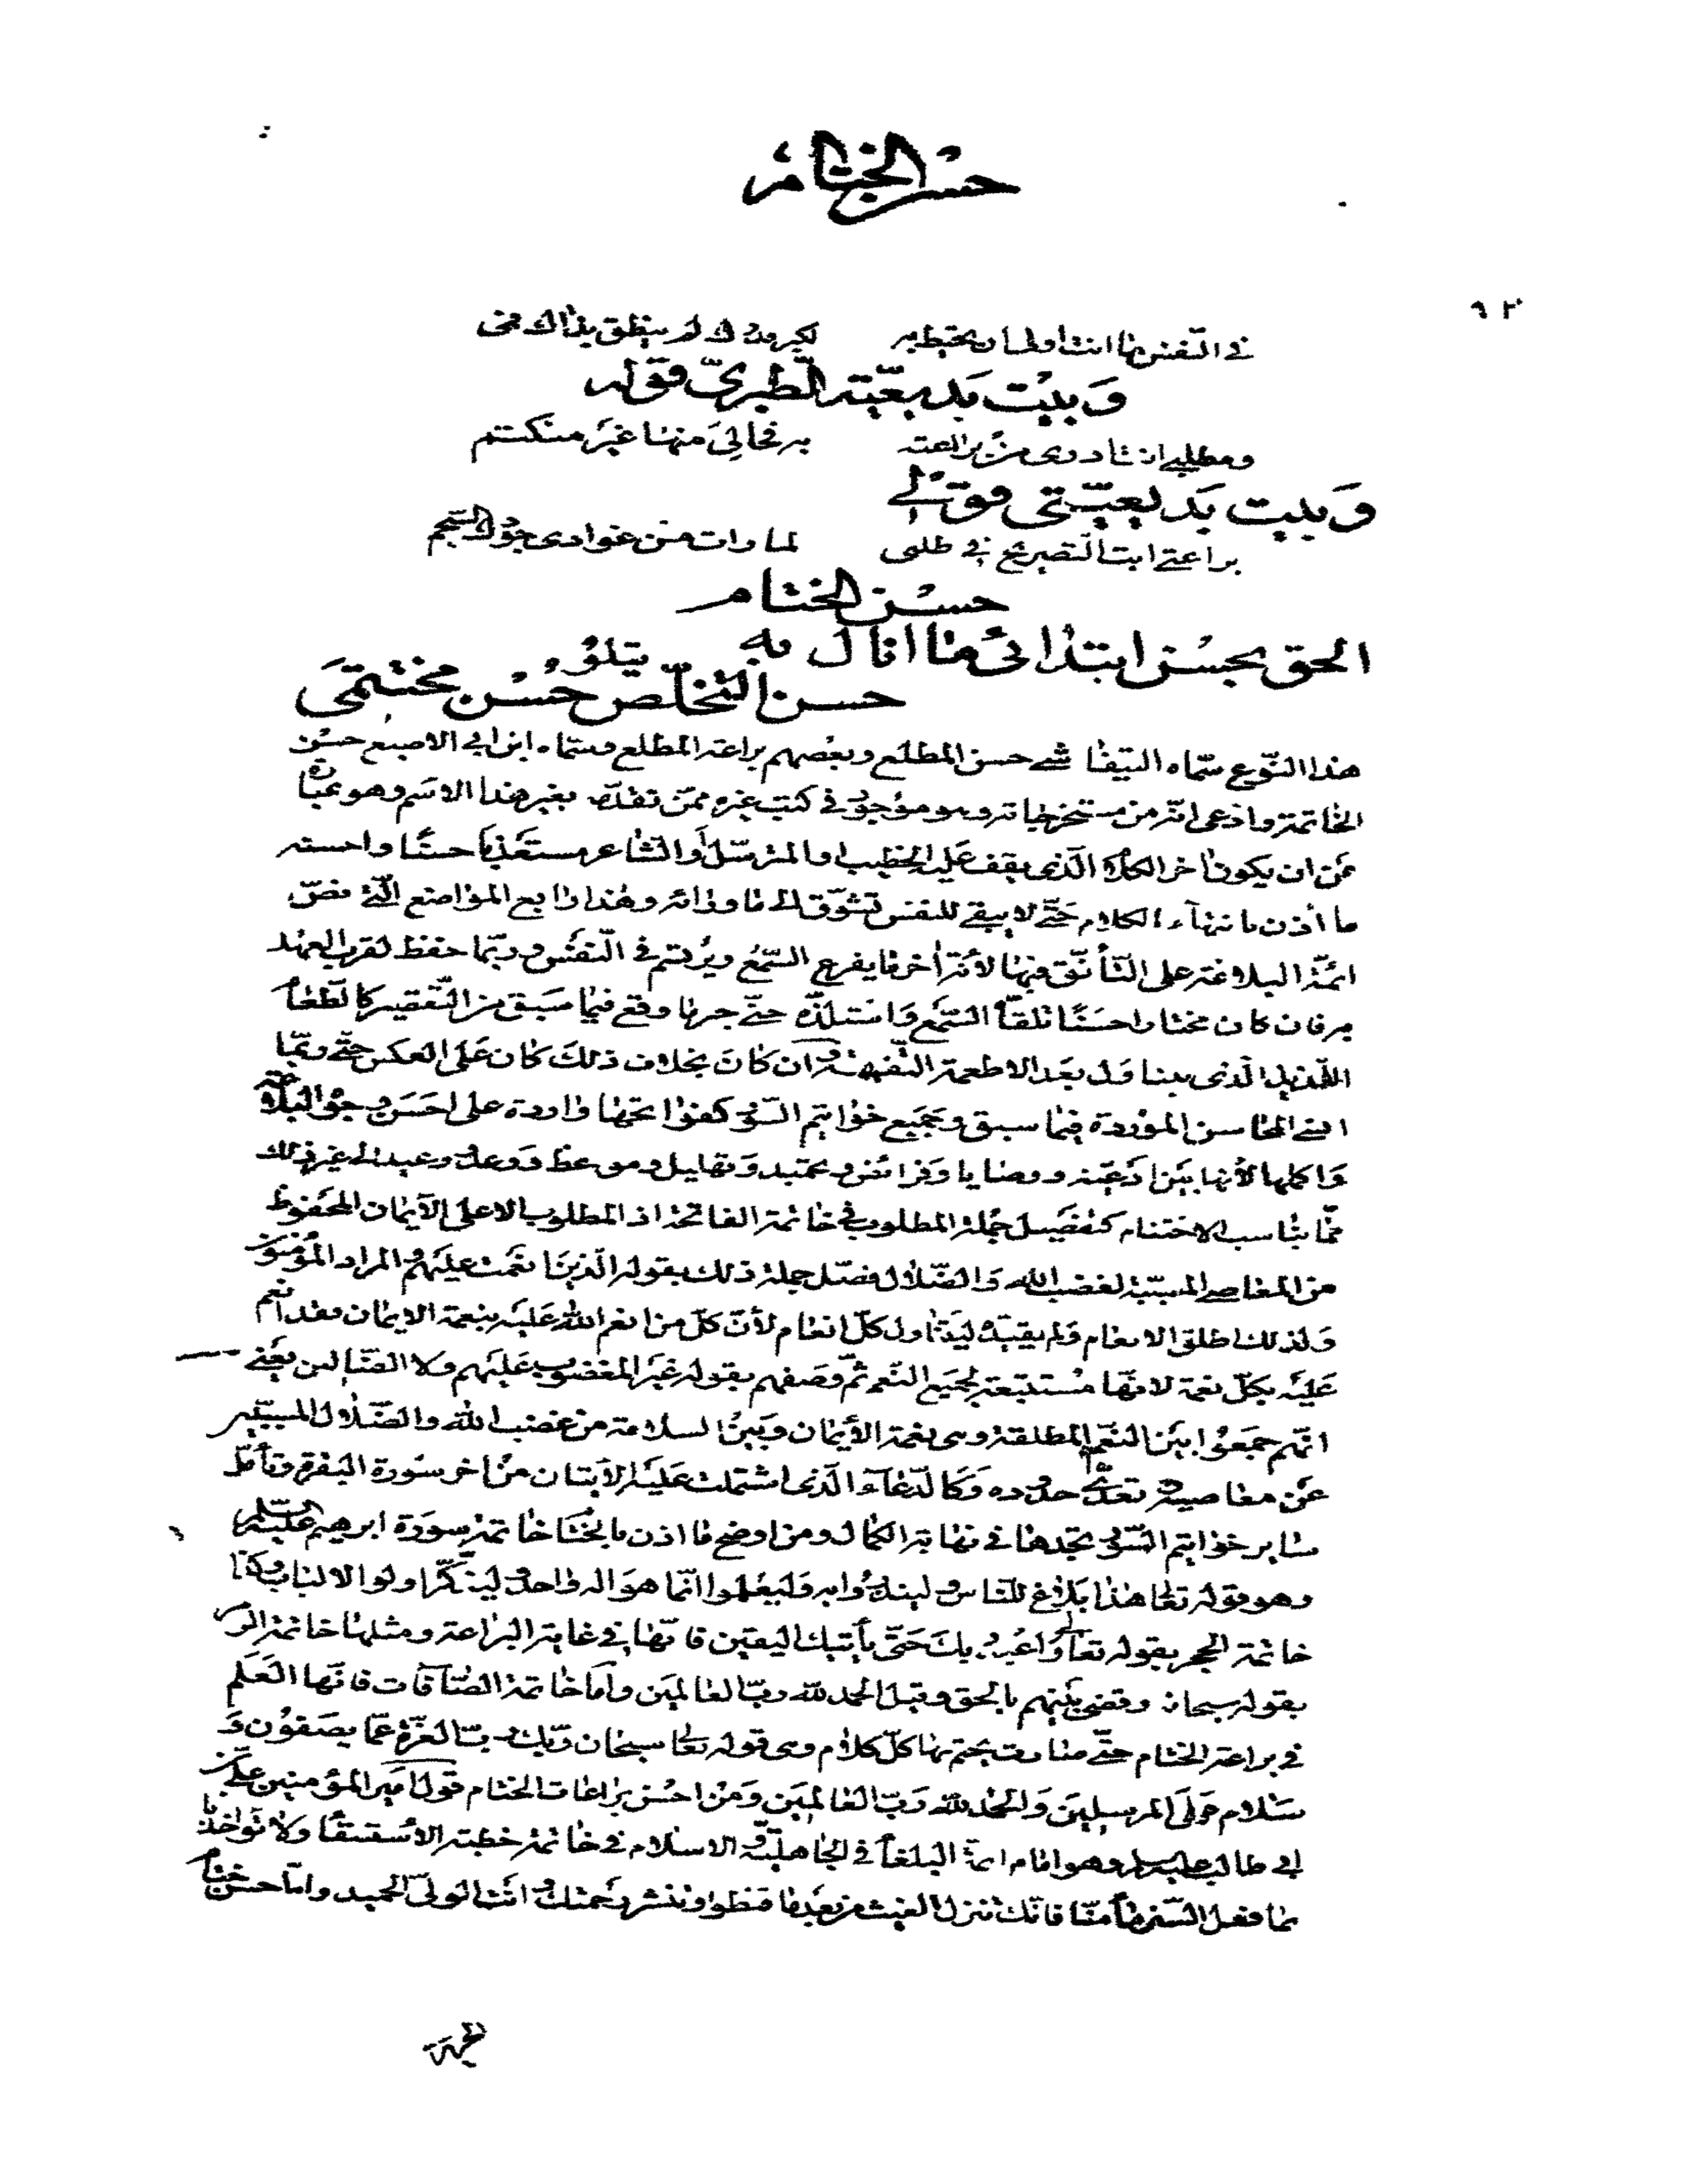 حسن الختام
في النفس ما انت اولى ان تحيط به لكن ولم ينطق بذاك فمي
وبيت بديعية الطبري قوله
ومطلبي انت ادرى من براعته به فحالي منها غير منكتم
وبيت بديعيتي قولي
براعتي ابت التصريح في طلبي لما رات من غوادي جودك السجم
حسن الختام
الحق بحسن ابتدائي ما انال به يتلو
حسن التخلص حسن مختتمي
هذا النوع سماه التيفاشي حسن المطلع وبعضهم براعة المطلع وسماه ابن ابي الاصبع حسن
الخاتمة وادعى انه من مستخرجاته وهو موجود في كتب غيره ممن تقدمه بغير هذا الاسم وهو عبارة
عن ان يكون اخر الكلام الذي يقف عليه الخطيب او المترسل او الشاعر مستعذبا حسنا واحسنه
ما أذن بانتهاء الكلام حتى لا يبقى للنفس تشوق الى ما وراءه وهذا رابع المواضع التي نص
ائمة البلاغة على التأنق فيها لأنه اخر ما يقرع السمع ويرتسم في النفس وربما حفظ لقرب العهد
به فان كان مختارا حسنا تلقاه السمع واستلذه حتى جبر ما وقع فيما سبق من التقصير كالطعام
اللذيذ الذي يتناول بعد الاطعمة التفهة وان كان بخلاف ذلك كان على العكس حتى ربما
انسى المحاسن الموردة فيما سبق وجميع خواتيم السور كفواتحها واردة على احسن وجوه البلاغة
واكملها لأنها بين ادعية ووصايا وفرائض وتحميد وتهليل ومواعظ ووعد ووعيد الى غير ذلك
مما يناسب الاختتام كتفصيل جملة المطلوب في خاتمة الفاتحة اذ المطلوب الاعلى الايمان المحفوظ
من المعاصي المسببة لغضب الله والضلال ففصل جملة ذلك بقوله الذين انعمت عليهم والمراد المؤمنون
ولذلك اطلق الانعام ولم يقيده ليتناول كل انعام لأن كل من انعم الله عليه بنعمة الايمان فقد انعم
عليه بكل نعمة لانها مستتبعة لجميع النعم ثم وصفهم بقوله غير المغضوب عليهم ولا الضالين يعني
انهم جمعوا بين النعم المطلقة وهي نعمة الأيمان وبين السلامة من غضب الله والضلال المسببين
عن معاصيه وتعدي حدوده وكالدعاء الذي اشتملت عليه الآيتان من اخر سورة البقرة وتأمل
ساير خواتيم السور تجدها في نهاية الكمال ومن اوضح ما اذن بالختام خاتمة سورة ابرهيم عليه السلم
وهو قوله تعالى هذا بلاغ للناس ولينذروا به وليعلموا انما هو اله واحد وليذكر اولوا الالباب وكذا
خاتمة الحجر بقوله تعالى واعبد ربك حتى يأتيك اليقين فانها في غاية البراعة ومثلها خاتمة الزمر
بقوله سبحانه وقضى بينهم بالحق وقيل الحمد لله رب العالمين وأما خاتمة الصافات فانها العلم
في براعة الختام حتى صارت يختم بها كل كلام وهي قوله تعالى سبحان ربك رب العزة عما يصفون و
سلام على المرسلين والحمد لله رب العالمين ومن احسن براعات الختام قول امير المؤمنين علي بن
ابي طالب عليه السلم وهو امام ائمة البلغاء في الجاهلية والاسلام في خاتمة خطبة الاستسقاء ولا تؤاخذنا
بما فعل السفهاء منا فانك تنزل الغيث من بعد ما قنطوا وتنشر رحمتك وانت الولي الحميد واما حسن ختام